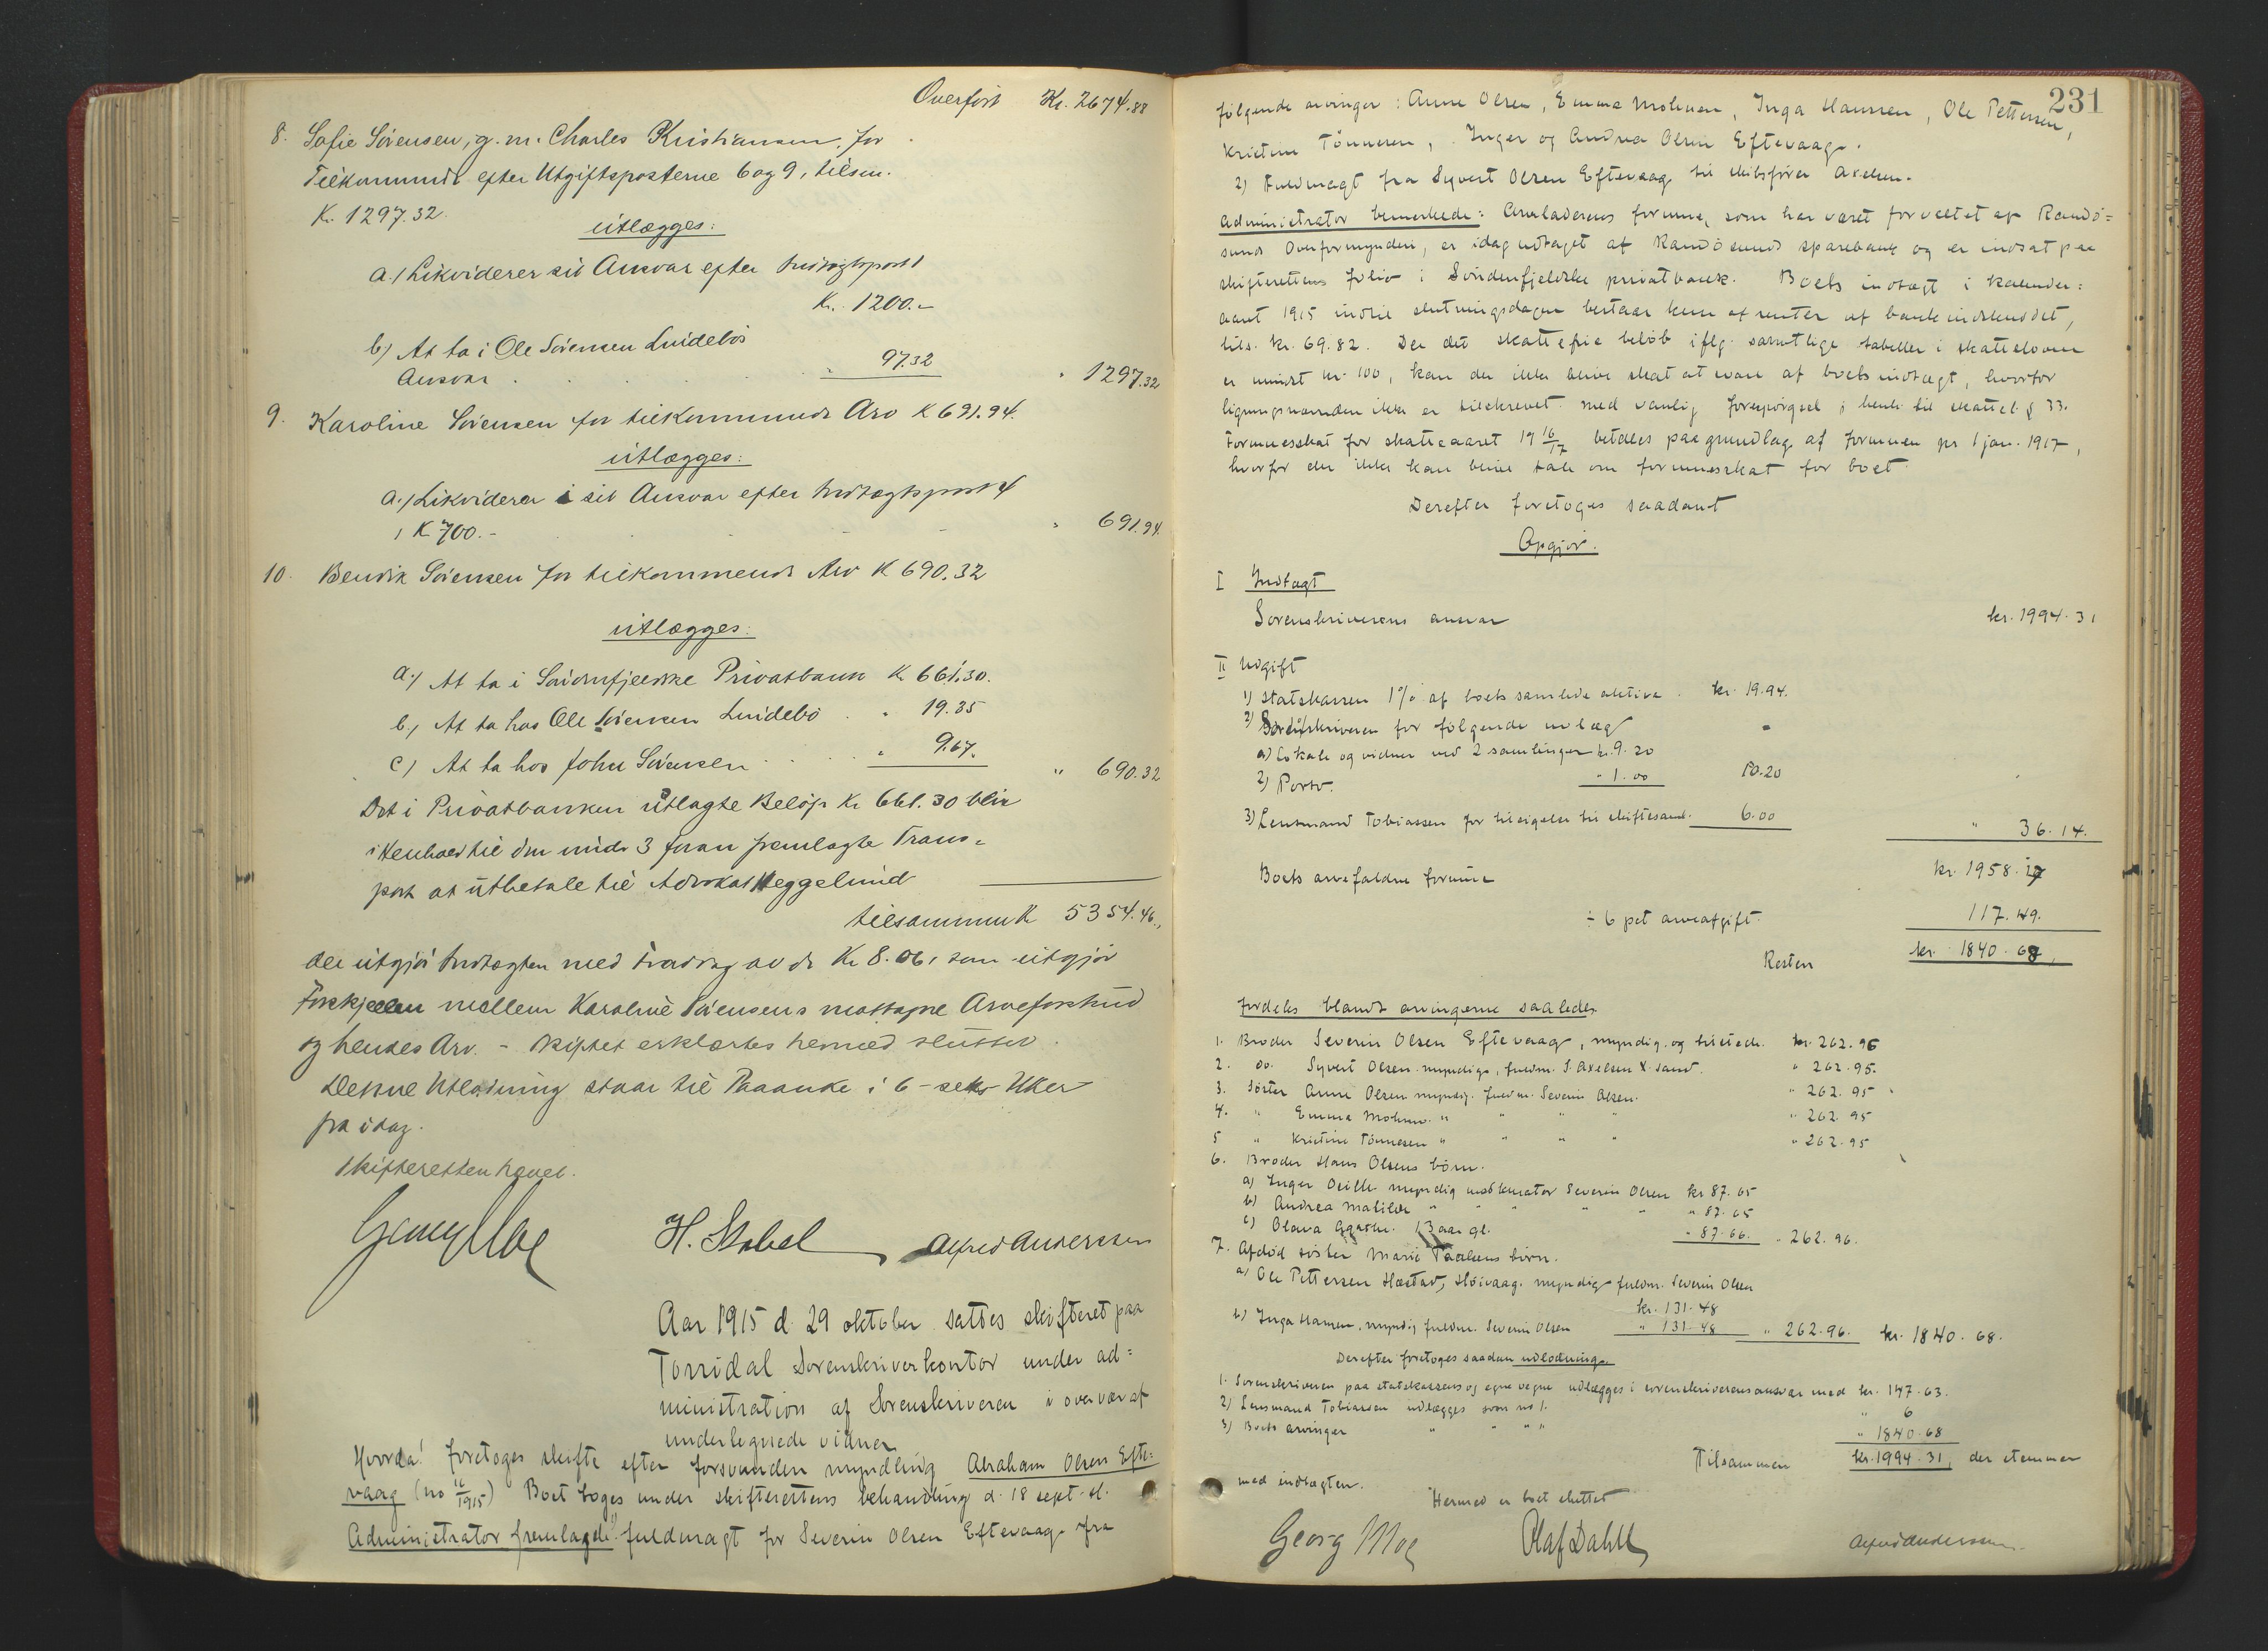 Overført Kr. 2674.88
8. Sofie Sørensen, g. m. Charles Kristiansen, for
Tilkommende efter Utgiftsposterne 6 og 9, tilsm.
Kr. 1297.32
utlægges:
a./ Likviderer sit Ansvar efter Indtægtspost 1
Kr. 1200.-
b) At ta i Ole Sørensen Lindebøs
Ansvar . . . . " 97.32 " 1297.32
9. Karoline Sørensen for tilkommende Arv K 691.94.
utlægges:
a./ Likviderer i sit Ansvar efter Indtægtspost 4
, K 700.- " 691.94
10. Bendik Sørensen for tilkommende Arv K 690.32
utlægges:
a./ At ta i Søndenfjeldske Privatbank K 661.30.
b./ At ta hos Ole Sørensen Lindebø . " 19.35
c) At ta hos John Sørensen . . . " 9.67. " 690.32
Det i Privatbanken utlagte Beløp Kr 661.30 blir
i Henhold til den under 3 foran fremlagte Trans-
port at utbetale til Advokat Heggelund
tilsammen K 5354.46.,
der utgjør Indtægten med Fradrag av de Kr 8.06, som utgjør
Forskjellen mellem Karoline Sørensens mottagne Arveforskud
og hendes Arv. - Skiftet erklærtes hermed sluttet.
Denne Utlodning staar til Paaanke i 6 - seks Uker
fra idag.
Skifteretten hævet.
Georg Moe H. Stabel Alfred Anderssen
Aar 1915 d. 29 oktober sattes skifteret paa
Torridal Sorenskriverkontor under ad=
ministration af Sorenskriveren i overvær af
underlegnede vidner
Hvorda! foretoges skifte efter forsvunden myndling Abraham Olsen Efte=
vaag (no 16/1915) Boet toges under skifterettens behandling d. 18 sept. sl.
Administrator fremlagde: fuldmagt for Severin Olsen Eftevaag fra
231
følgende arvinger: Anne Olsen, Emma Molman, Inga Hansen, Ole Pettersen,
Kristine Tønnesen, Inger og Andrea Olsen Eftevaag.
2) Fuldmagt fra Syvert Olsen Eftevaag til skibsfører Axelsen.
Administrator bemerkede: Arveladerens formue, som har været forvaltet af Randø=
sunds Overformynderi, er idag udtaget af Randøsunds sparebank og er indsat paa
skifterettens folio i Søndenfjeldske privatbank. Boets indtægt i kalender=
aaret 1915 indtil slutningsdagen bestaar kun af renter af bankindskuddet,
tils. kr. 69.82. Da det skattefrie beløb iflg. samtlige tabeller i skatteloven
er mindst kr. 100, kan der ikke blive skat at svare af boets indtægt, hvorfor
ligningsnævnden ikke er tilskrevet med vanlig forespørgsel i henh. til skattel. § 33.
Formuesskat for skatteaaret 19 16/17 betales paa grundlag af formuen pr 1 jan. 1917,
hvorfor der ikke kan blive tale om formuesskat for boet.
Derefter foretoges saadant
Opgjør.
I Indtægt
Sorenskriverens ansvar kr. 1994.31
II Udgift
1) Statskassen 1% af boets samlede aktiva . kr. 19.94.
2) Sorenskriveren for følgende udlæg
a) Lokale og vidner ved 2 samlinger kr. 9.20
2) Porto. " 1.00 10.20
3) Lensmand Tobiassen for tilsigelse til skiftesaml. 6.00 " 36.14.
Boets arvefaldne formue kr. 1958.17
÷ 6 pct arveafgift. 117.49.
Resten kr. 1840.68,
fordeles blandt arvingerne saaledes.
1. Broder Severin Olsen Eftevaag, myndig og tilstede. kr. 262.96
2. do. Syvert Olsen myndig, fuldm. S. Axelsen " 262.95.
3. Søster Anne Olsen myndig. fuldm. Severin Olsen. " 262.95
4. " Emma Molman. " " " " " 262.95
5 " Kristine Tønnesen " " " " " 262.95
6. Broder Hans Olsens børn.
a) Inger Otilie myndig med kurator Severin Olsen kr 87.65
b) Andrea Matilde " " " " " " 87.65
c) Olava Agathe. 13 aar gl. " 87.66. " 262.96.
7. Afdød søster Marie børn.
a) Ole Pettersen Hæstad, Høivaag. myndig fuldm. Severin Olsen
kr. 131.48
b) Inga Hansen, myndig fuldm. Severin Olsen " 131.48 " 262.96. kr. 1840.68.
Derefter foretoges saadan udlodning.
1. Sorenskriveren paa statskassens og egne vegne udlægges i sorenskriverens ansvar med kr. 147.63.
2) Lensmand Tobiassen udlægges som no 1. " 6
3) Boets arvinger " " " " " 1840.68
Tilsammen kr. 1994.31, der stemmer
med indtægten.
Hermed er boet sluttet
Georg Moe Olaf Dahll Alfred Anderssen